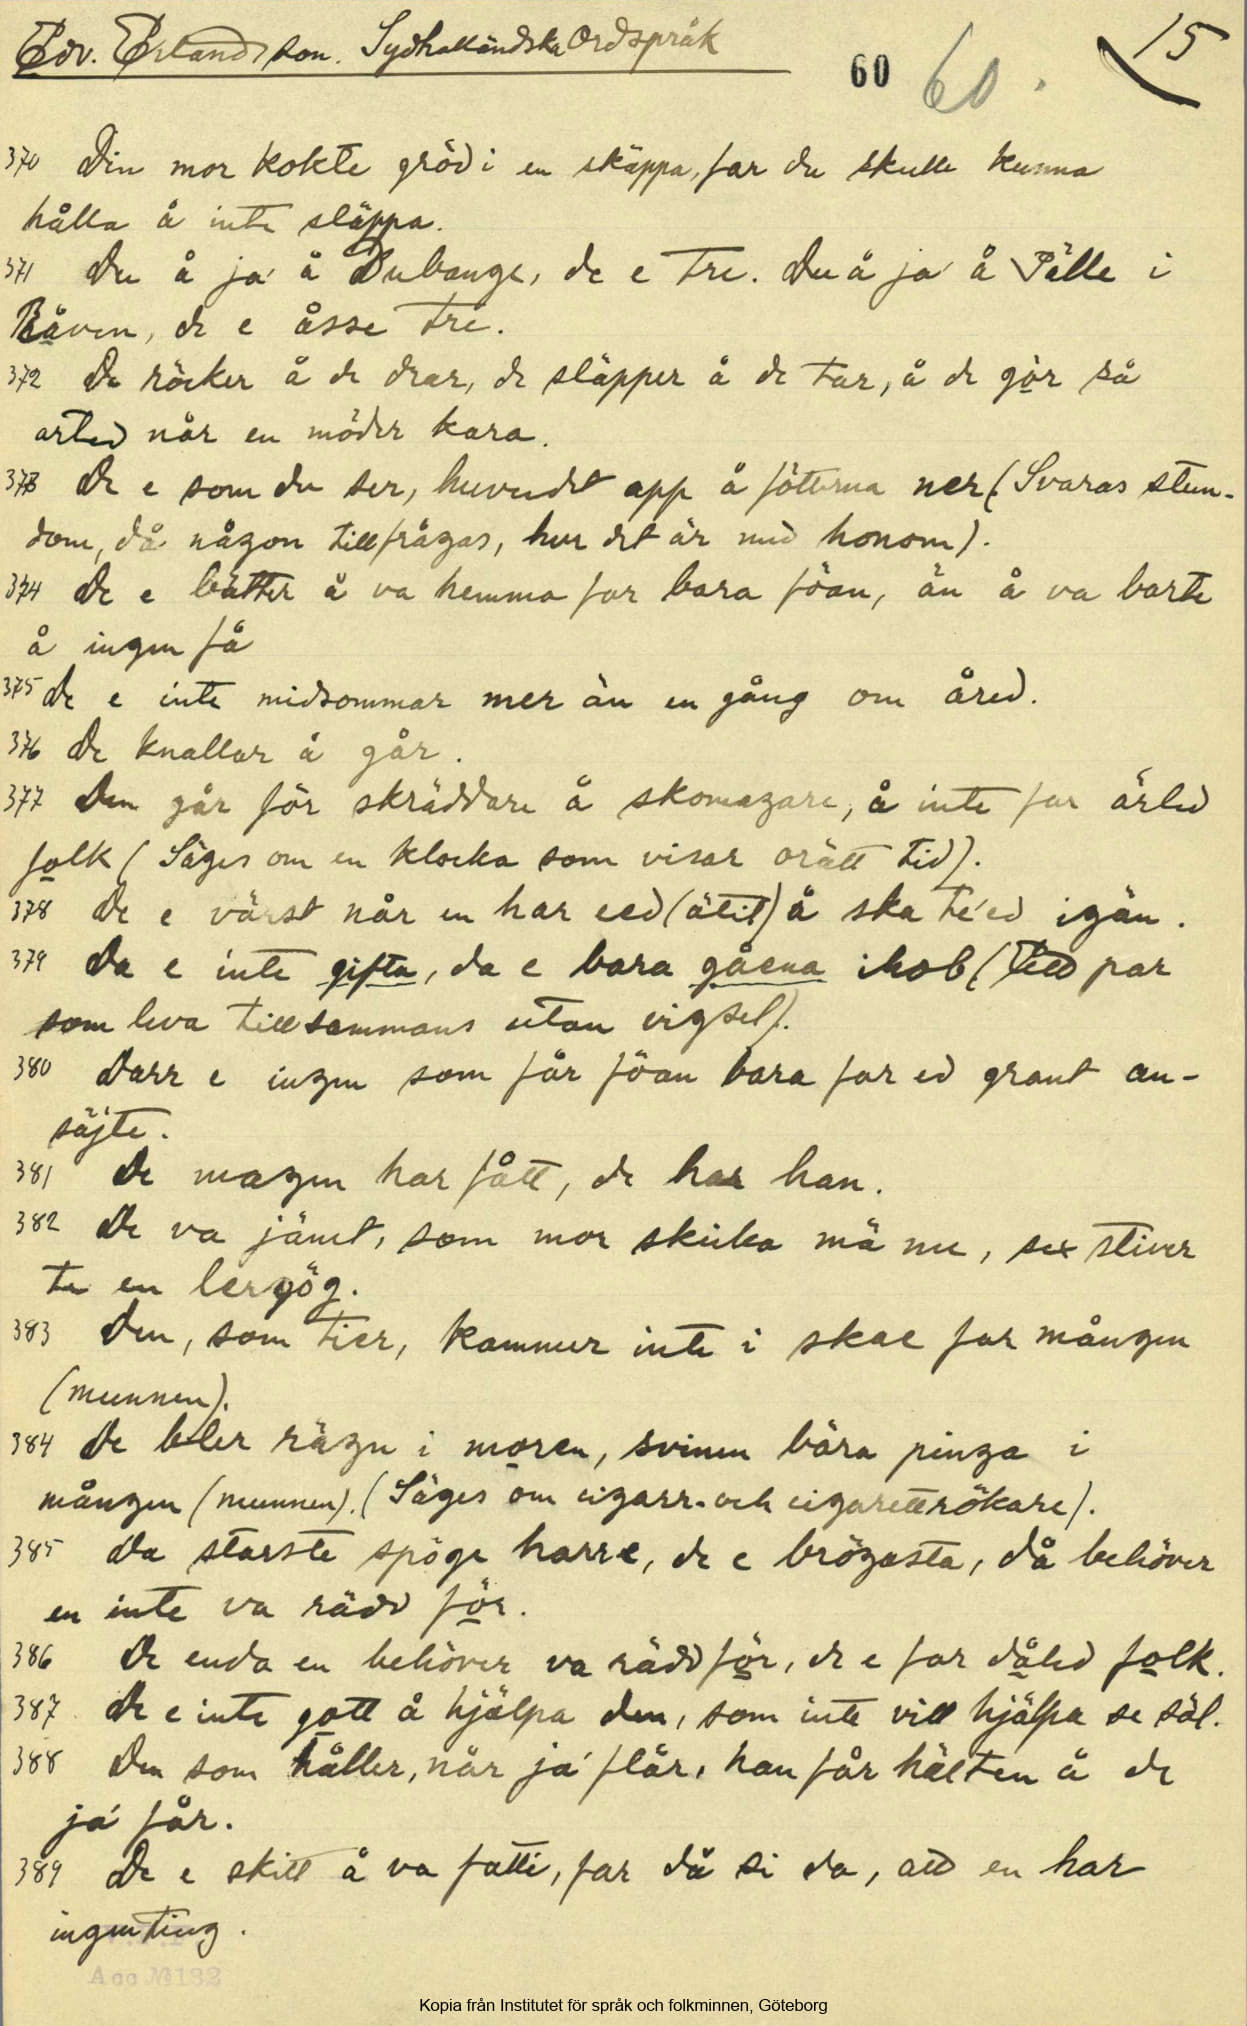 Edv. Erlandsson. Sydhalländska Ordspråk
60 60. 15
370 Din mor kokte gröd i en skäppa, far du skulle kunna
hålla å inte släppa.
371 Du å ja' å Dubange, de e tre. Du å ja' å Pälle i
Råven, de e åsse tre.
372 De röcker å de drar, de släpper å de tar, å de gör så
arted når en möder kara.
373 De e som du ser, huvudet opp å fötterna ner (Svaras stun-
dom, då någon tillfrågas, hur det är med honom).
374 De e bätter å va hemma far bara föan, än å va barte
å ingen få
375 De e inte midsommar mer än en gång om åred.
376 De knallar å går.
377 Den går för skräddare å skomagare, å inte far ärled
folk (Säges om en klocka som visar orätt tid).
378 De e värst når en har eed (ätit) å ska te'ed igän.
379 Da e inte gifta, da e bara gåena ihob (Ett par
som leva tillsammans utan vigsel).
380 Darr e ingen som får föan bara far ed grant an-
säjte.
381 De magen har fått, de har han.
382 De va jämt, som mor skicka mä me, sex stiver
te en lergög.
383 Den, som tier, kammer inte i skae far mången
(munnen).
384 De bler rägn i moren, svinen bära pinga i
mången (munnen). (Säges om cigarr- och cigarettrökare).
385 Da starste spöge harre, de e brögasta, då behöver
en inte va rädd för.
386 De enda en behöver va rädd för, de e far dåled folk.
387 De e inte gott å hjälpa den, som inte vill hjälpa se säl.
388 Den som håller, når ja' flår, han får hälten å de
ja' får.
389 De e skitt å va fatti, far då si da, att en har
ingenting.
Acc № 182
Kopia från Institutet för språk och folkminnen, Göteborg